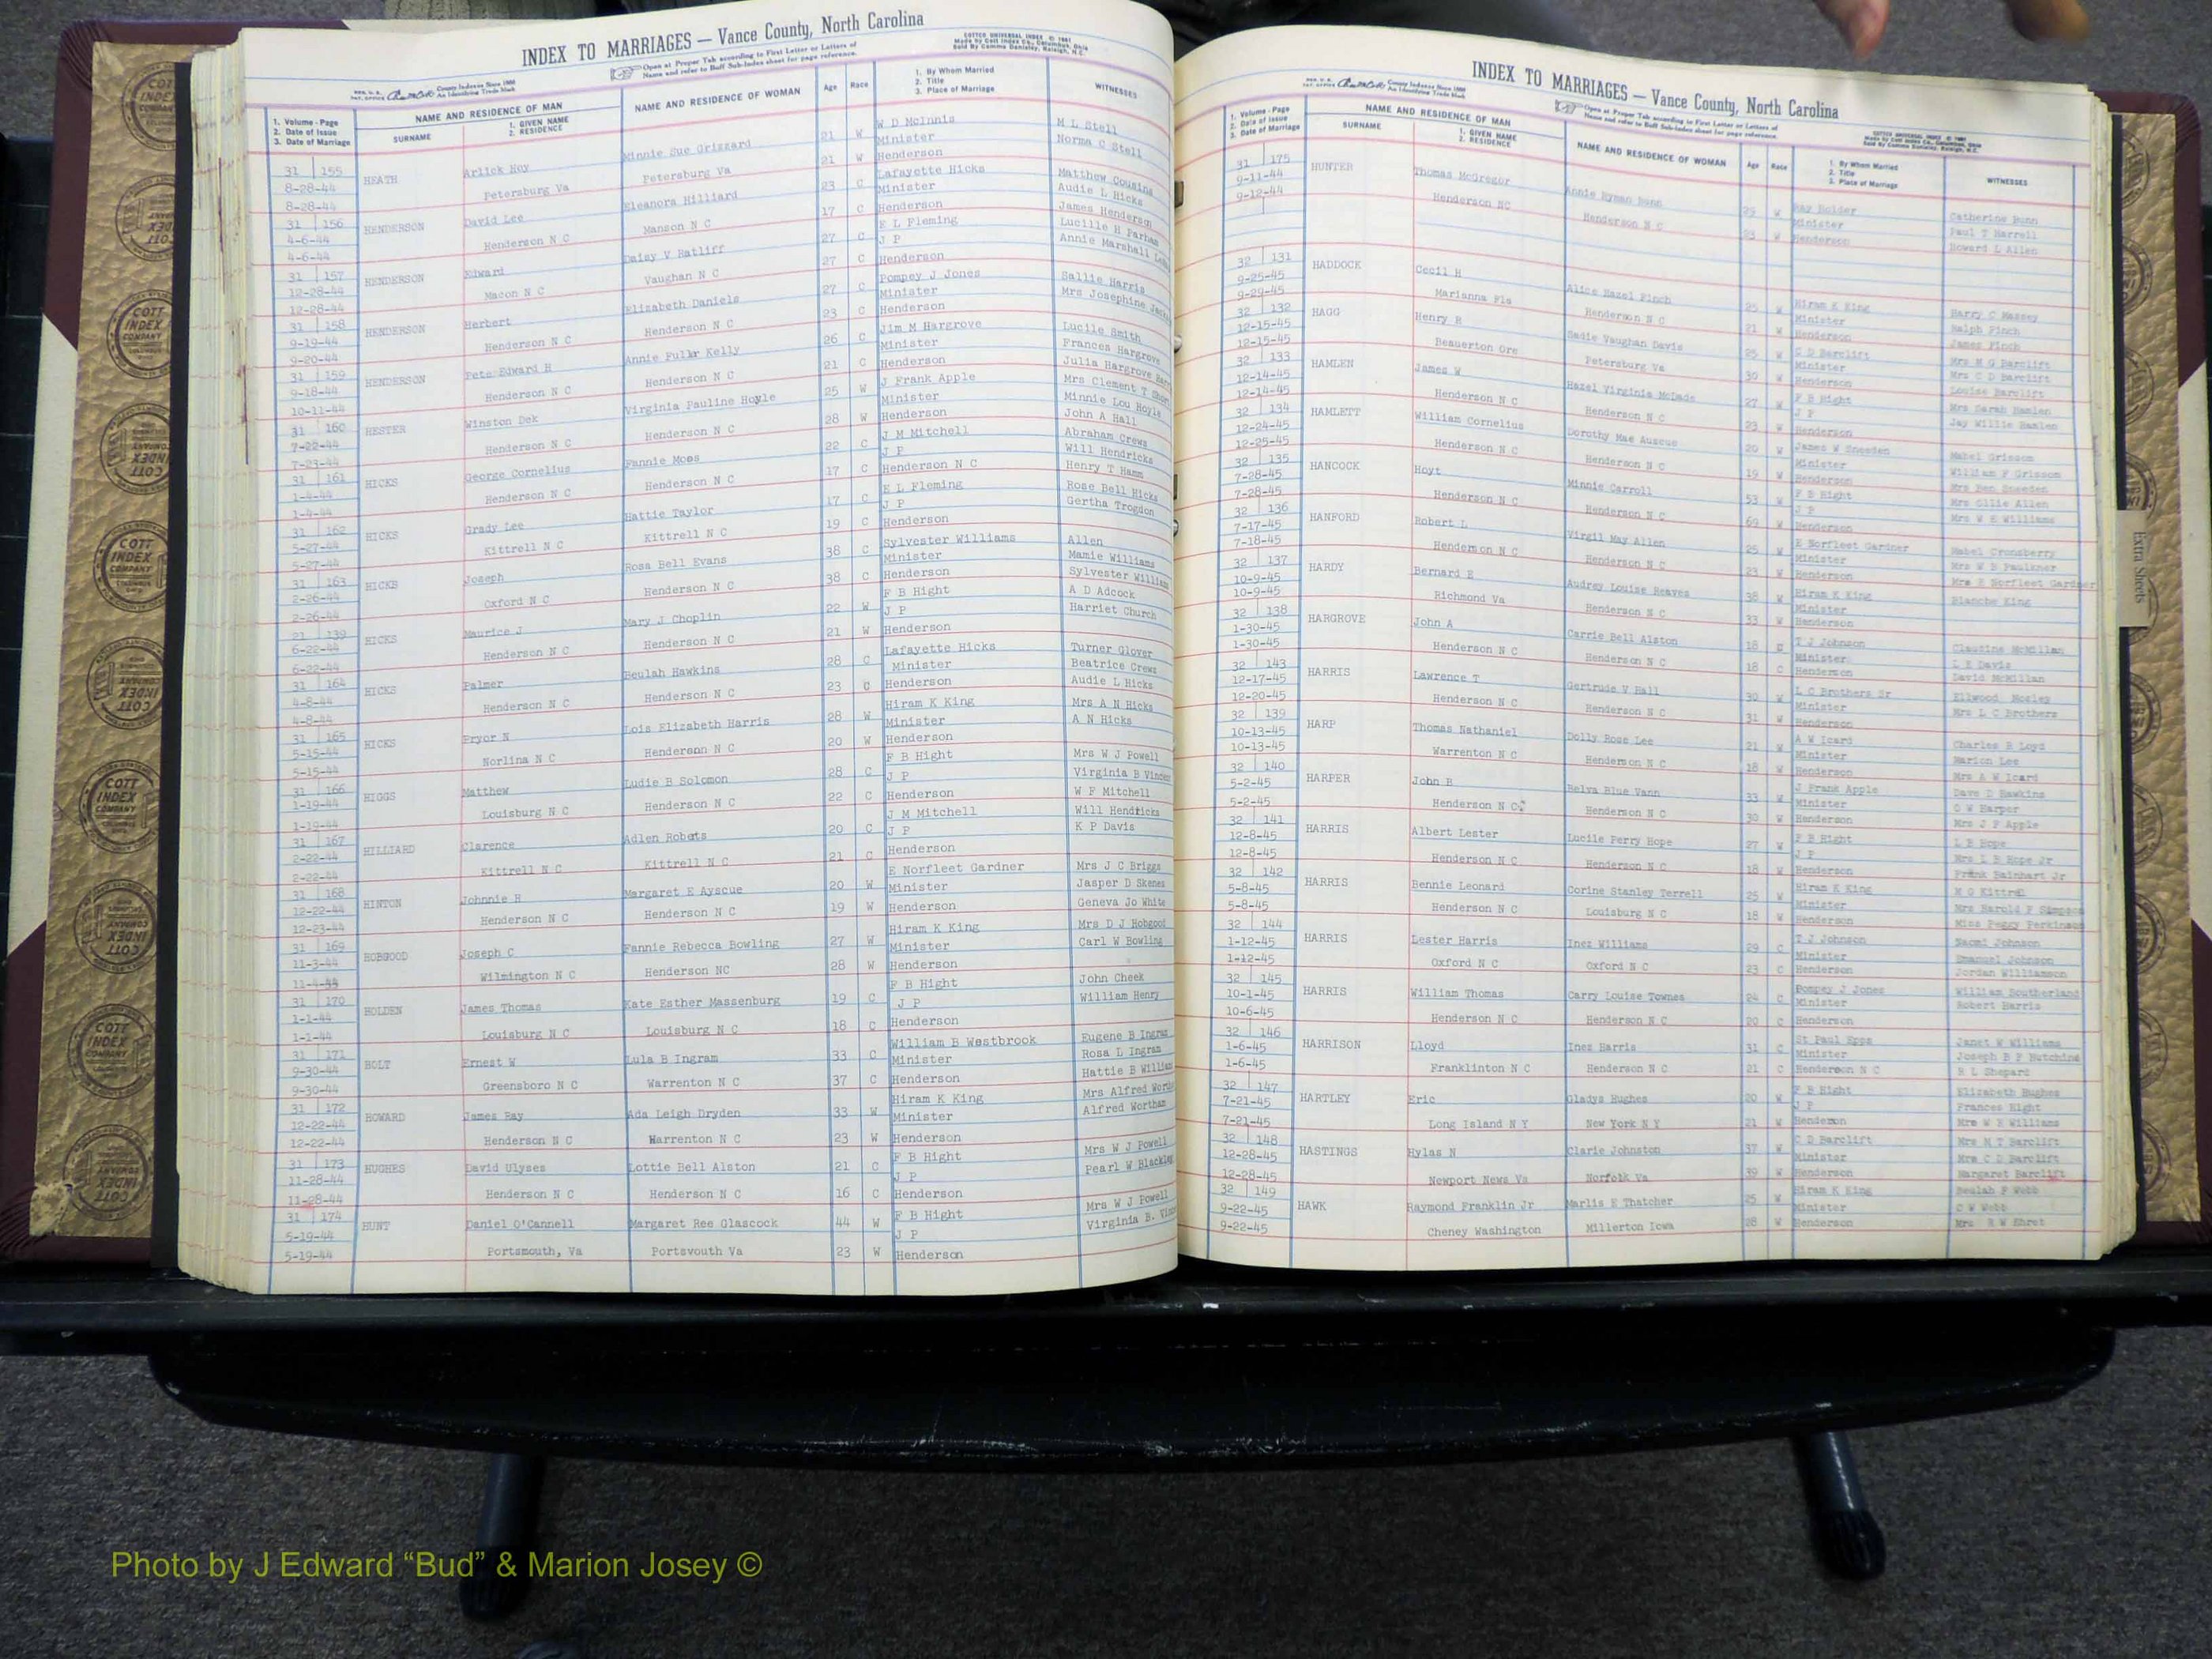 INDEX TO MARRIAGES — Vance County, North Carolina
Open at Proper Tab according to First Letter or Letters of
Name and refer to Buff Sub-Index sheet for page reference.
COTTCO UNIVERSAL INDEX © 1961
County Indexes Since 1888
An Identifying Trade Mark
1. Volume - Page
2. Date of Issue
3. Date of Marriage
NAME AND RESIDENCE OF MAN
SURNAME
1. GIVEN NAME
2. RESIDENCE
NAME AND RESIDENCE OF WOMAN
Age Race
1. By Whom Married
2. Title
3. Place of Marriage
WITNESSES
31 155 HEATH Arlick Hoy Minnie Sue Grizzard 21 W W D McInnis M L Stell
8-28-44 Petersburg Va Petersburg Va 21 W Minister Norma C Stell
8-28-44 Henderson
31 156 HENDERSON David Lee Eleanora Hilliard 23 C Lafayette Hicks Matthew Cousins
4-6-44 Henderson N C Manson N C 17 C Minister Audie L Hicks
4-6-44 Henderson James Henderson
31 157 HENDERSON Edward Daisy V Ratliff 27 C E L Fleming Lucille H Parham
12-28-44 Macon N C Vaughan N C 27 C J P Annie Marshall
12-28-44 Henderson
31 158 HENDERSON Herbert Elizabeth Daniels 27 C Pompey J Jones Sallie Harris
9-19-44 Henderson N C Henderson N C 23 C Minister Mrs Josephine
9-20-44 Henderson
31 159 HENDERSON Pete Edward H Annie Fullr Kelly 26 C Jim M Hargrove Lucile Smith
9-18-44 Henderson N C Henderson N C 21 C Minister Frances Hargrove
10-11-44 Henderson Julia Hargrove
31 160 HESTER Winston Dek Virginia Pauline Hoyle 25 W J Frank Apple Mrs Clement T
7-22-44 Henderson N C Henderson N C 28 W Minister Minnie Lou Hoyle
7-23-44 Henderson John A Hall
31 161 HICKS George Cornelius Fannie Moss 22 C J M Mitchell Abraham Crews
1-4-44 Henderson N C Henderson N C 17 C J P Will Hendricks
1-4-44 Henderson N C Henry T Hamm
31 162 HICKS Grady Lee Hattie Taylor 17 C E L Fleming Rose Bell Hicks
5-27-44 Kittrell N C Kittrell N C 19 C J P Gertha Trogdon
5-27-44 Henderson
31 163 HICKS Joseph Rosa Bell Evans 38 C Sylvester Williams Allen
2-26-44 Oxford N C Henderson N C 38 C Minister Mamie Williams
2-26-44 Henderson Sylvester
21 139 HICKS Maurice J Mary J Choplin 22 W F B Hight A D Adcock
6-22-44 Henderson N C Henderson N C 21 W J P Harriet Church
6-22-44 Henderson
31 164 HICKS Palmer Beulah Hawkins 28 C Lafayette Hicks Turner Glover
4-8-44 Henderson N C Henderson N C 23 C Minister Beatrice Crews
4-8-44 Henderson Audie L Hicks
31 165 HICKS Pryor N Lois Elizabeth Harris 28 W Hiram K King Mrs A N Hicks
5-15-44 Norlina N C Hendersnn N C 20 W Minister A N Hicks
5-15-44 Henderson
31 166 HIGGS Matthew Ludie B Solomon 28 C F B Hight Mrs W J Powell
1-19-44 Louisburg N C Henderson N C 22 C J P Virginia B
1-19-44 Henderson W F Mitchell
31 167 HILLIARD Clarence Adlen Robets 20 C J M Mitchell Will Hendricks
2-22-44 Kittrell N C Kittrell N C 21 C J P K P Davis
2-22-44 Henderson
31 168 HINTON Johnnie H Margaret E Ayscue 20 W E Norfleet Gardner Mrs J C Briggs
12-22-44 Henderson N C Henderson N C 19 W Minister Jasper D Skenes
12-23-44 Henderson Geneva Jo White
31 169 HOBGOOD Joseph C Fannie Rebecca Bowling 27 W Hiram K King Mrs D J Hobgood
11-3-44 Wilmington N C Henderson NC 28 W Minister Carl W Bowling
Henderson
31 170 HOLDEN James Thomas Kate Esther Massenburg 19 C F B Hight John Cheek
1-1-44 Louisburg N C Louisburg N C 18 C J P William Henry
1-1-44 Henderson
31 171 HOLT Ernest W Lula B Ingram 33 C William B Westbrook Eugene B Ingram
9-30-44 Greensboro N C Warrenton N C 37 C Minister Rosa L Ingram
9-30-44 Henderson Hattie B
31 172 HOWARD James Ray Ada Leigh Dryden 33 W Hiram K King Mrs Alfred
12-22-44 Henderson N C Warrenton N C 23 W Minister Alfred Wortham
12-22-44 Henderson
31 173 HUGHES David Ulyses Lottie Bell Alston 21 C F B Hight Mrs W J Powell
11-28-44 Henderson N C Henderson N C 16 C J P Pearl W
11-28-44 Henderson
31 174 HUNT Daniel O'Cannell Margaret Ree Glascock 44 W F B Hight Mrs W J Powell
5-19-44 Portsmouth, Va Portsvouth Va 23 W J P Virginia B.
5-19-44 Henderson
INDEX TO MARRIAGES — Vance County, North Carolina
Open at Proper Tab according to First Letter or Letters of
Name and refer to Buff Sub-Index sheet for page reference.
1. Volume - Page
2. Date of Issue
3. Date of Marriage
NAME AND RESIDENCE OF MAN
SURNAME
1. GIVEN NAME
2. RESIDENCE
NAME AND RESIDENCE OF WOMAN
Age Race
1. By Whom Married
2. Title
3. Place of Marriage
WITNESSES
31 175 HUNTER Thomas McGregor Annie Hyman Bunn 25 W Ray Holder Catherine Bunn
9-11-44 Henderson NC Henderson N C 23 W Minister Paul T Harrell
9-12-44 Henderson Howard L Allen
32 131 HADDOCK Cecil H Alice Hazel Finch 25 W Hiram K King Harry C Massey
9-25-45 Marianna Fla Henderson N C 21 W Minister Ralph Finch
9-29-45 Henderson James Finch
32 132 HAGG Henry R Sadie Vaughan Davis 25 W C D Barclift Mrs M G Barclift
12-15-45 Beauerton Ore Petersburg Va 30 W Minister Mrs C D Barclift
12-15-45 Henderson Louise Barclift
32 133 HAMLEN James W Hazel Virginia McDade 27 W F B Hight Mrs Sarah Hamlen
12-14-45 Henderson N C Henderson N C 23 W J P Jay Willie Hamlen
12-14-45 Henderson
32 134 HAMLETT William Cornelius Dorothy Mae Auscue 20 W James W Sneeden Mabel Grissom
12-24-45 Henderson N C Henderson N C 19 W Minister William F Grissom
12-25-45 Henderson Mrs Ben Sneeden
32 135 HANCOCK Hoyt Minnie Carroll 53 W F B Hight Mrs Ollie Allen
7-28-45 Henderson N C Henderson N C 69 W J P Mrs W E Williams
7-28-45 Henderson
32 136 HANFORD Robert L Virgil May Allen 25 W E Norfleet Gardner Mabel Cronsberry
7-17-45 Henderson N C Henderson N C 23 W Minister Mrs W B Faulkner
7-18-45 Henderson Mrs E Norfleet Gardner
32 137 HARDY Bernard E Audrey Louise Reaves 38 W Hiram K King Blanche King
10-9-45 Richmond Va Henderson N C 33 W Minister
10-9-45 Henderson
32 138 HARGROVE John A Carrie Bell Alston 18 C T J Johnson Claudine McMillan
1-30-45 Henderson N C Henderson N C 18 C Minister L E Davis
1-30-45 Henderson David McMillan
32 143 HARRIS Lawrence T Gertrude V Hall 30 W L C Brothers Sr Ellwood Mosley
12-17-45 Henderson N C Henderson N C 31 W Minister Mrs L C Brothers
12-20-45 Henderson
32 139 HARP Thomas Nathaniel Dolly Rose Lee 21 W A W Icard Charles B Loyd
10-13-45 Warrenton N C Henderson N C 18 W Minister Marion Lee
10-13-45 Henderson Mrs A W Icard
32 140 HARPER John B Belva Blue Vann 33 W J Frank Apple Dave D Hawkins
5-2-45 Henderson N C Henderson N C 30 W Minister O W Harper
5-2-45 Henderson Mrs J F Apple
32 141 HARRIS Albert Lester Lucile Perry Hope 27 W F B Hight L B Hope
12-8-45 Henderson N C Henderson N C 18 W J P Mrs L B Hope Jr
12-8-45 Henderson Frank Bainhart Jr
32 142 HARRIS Bennie Leonard Corine Stanley Terrell 25 W Hiram K King
5-8-45 Henderson N C Louisburg N C 18 W Minister Mrs Harold P Simpson
5-8-45 Henderson Miss Peggy Perkinson
32 144 HARRIS Lester Harris Inez Williams 29 C T J Johnson Naomi Johnson
1-12-45 Oxford N C Oxford N C 23 C Minister Emanuel Johnson
1-12-45 Henderson Jordan Williamson
32 145 HARRIS William Thomas Carry Louise Townes 24 C Pompey J Jones William Southerland
10-1-45 Henderson N C Henderson N C 20 C Minister Robert Harris
10-6-45 Henderson
32 146 HARRISON Lloyd Inez Harris 31 C St Paul Epps Janet W Williams
1-6-45 Franklinton N C Henderson N C 21 C Minister Joseph B P Hutchins
1-6-45 Henderson N C R L Shepard
32 147 HARTLEY Eric Gladys Hughes 20 W F B Hight Elizabeth Hughes
7-21-45 Long Island N Y New York N Y 21 W J P Frances Hight
7-21-45 Henderson Mrs W E Williams
32 148 HASTINGS Hylas N Clarie Johnston 37 W C D Barclift Mrs M T Barclift
12-28-45 Newport News Va Norfolk Va 39 W Minister Mrs C D Barclift
12-28-45 Henderson Margaret Barclift
32 149 HAWK Raymond Franklin Jr Marlis E Thatcher 25 W Hiram K King Beulah F Webb
9-22-45 Cheney Washington Millerton Iowa 28 W Minister C W Webb
9-22-45 Henderson Mrs R W Ehret
Extra Sheets
COTT INDEX COMPANY
Photo by J Edward “Bud” & Marion Josey ©